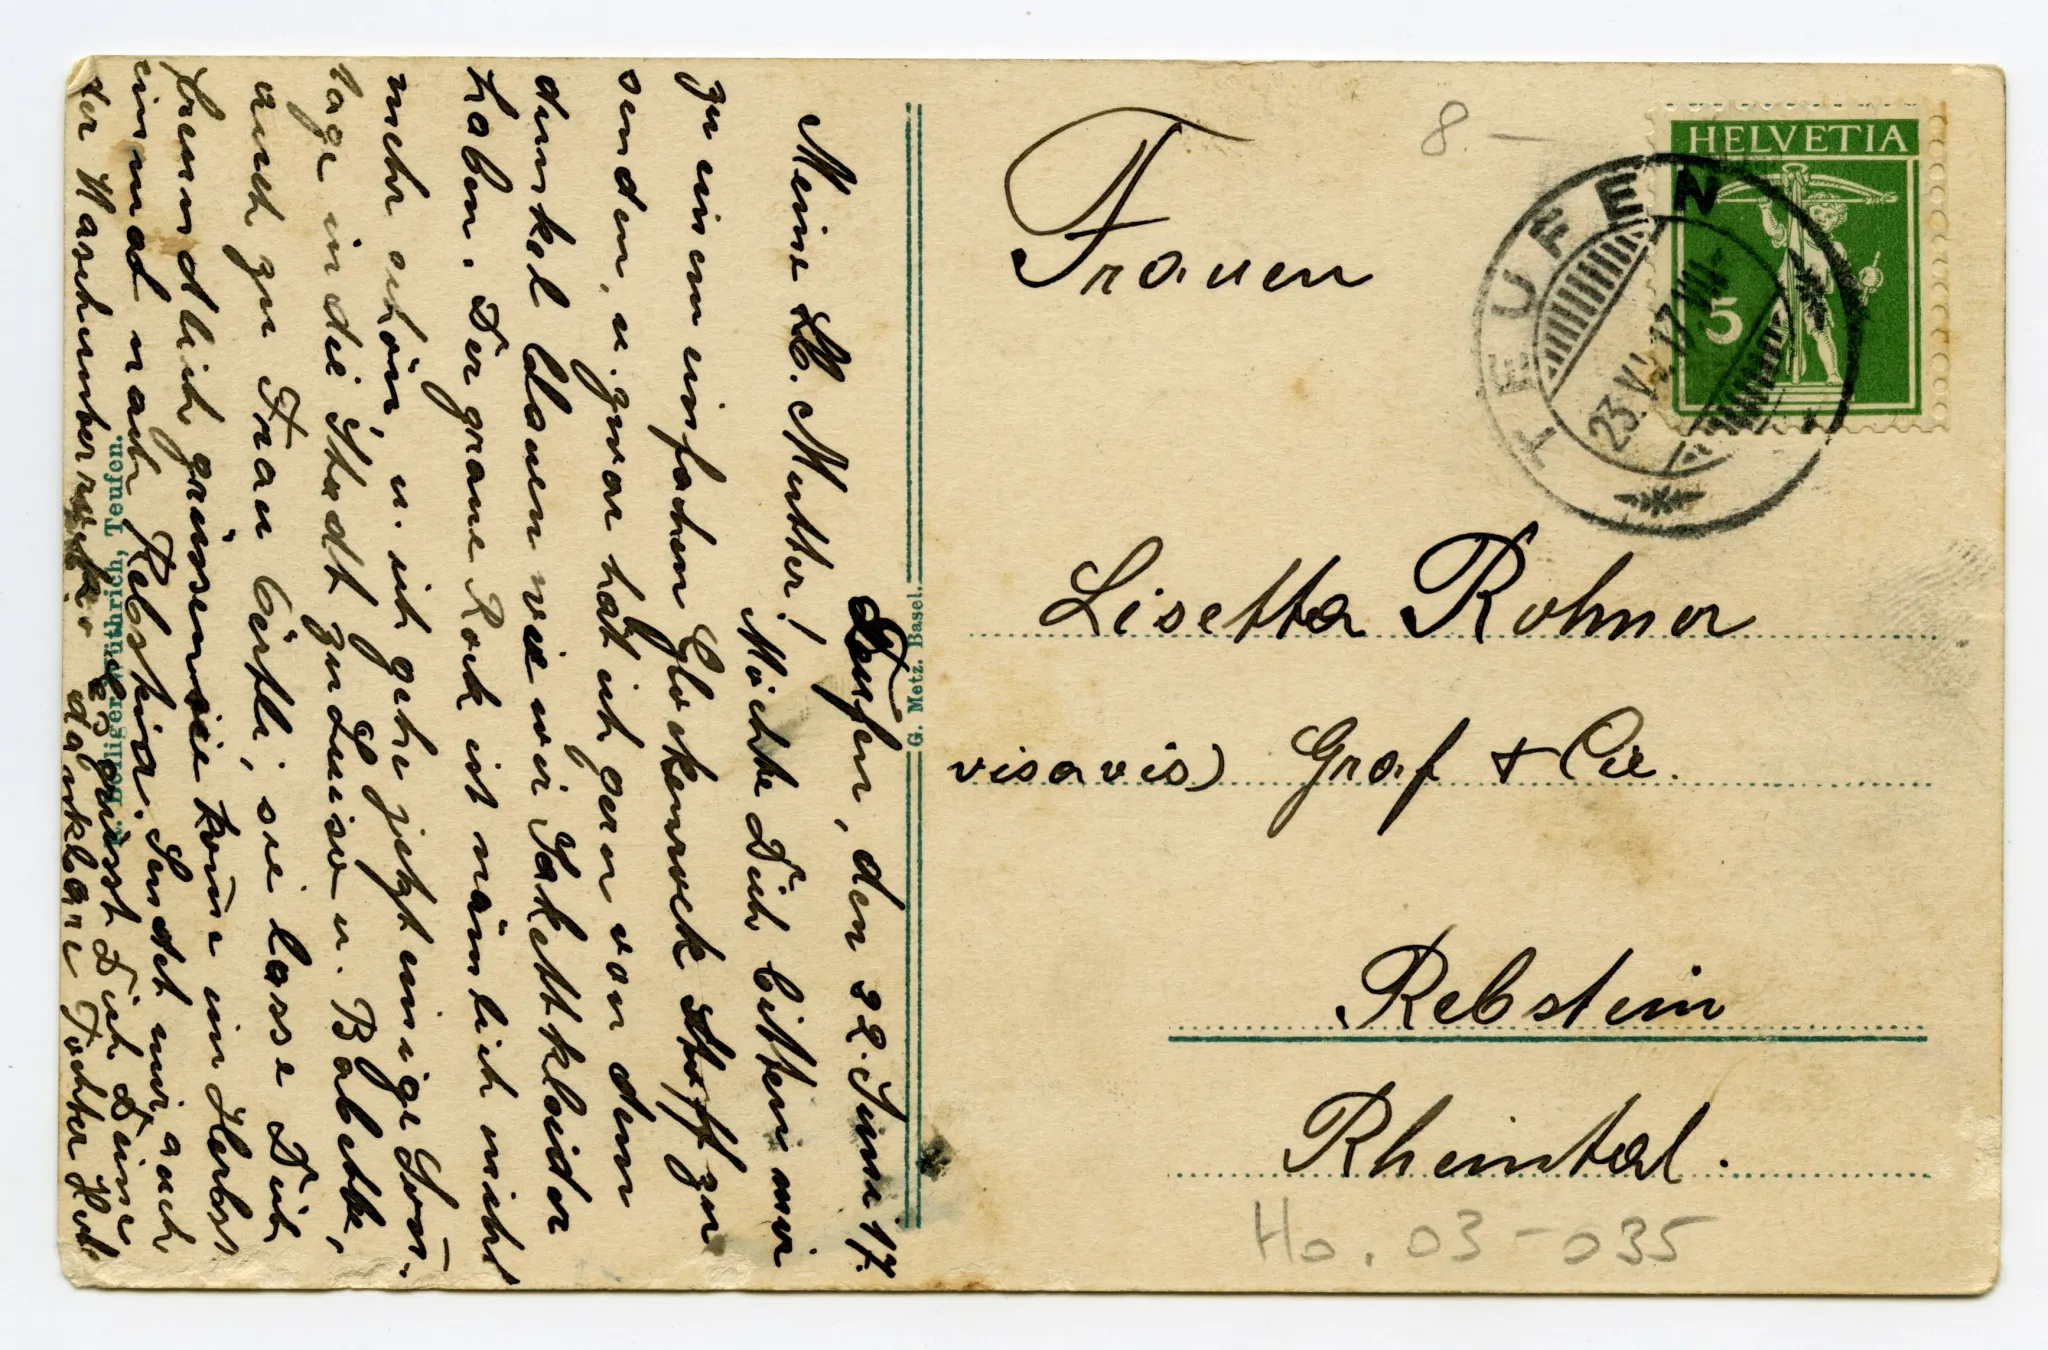 Teufen, den 22. Juni 17.
Meine Lb. Mutter!
Möchte Dich bitten mir
zu einem einfachen Glockenrock Stoff zu
senden, u. zwar hätt ich gern von dem
dunkel blauen wie wir Jakettkleider
haben. Der graue Rock ist nämlich nicht
mehr schön, u. ich gehe jetzt einige Son̄-
tage in die Stadt zu Luise u. Babette,
auch zu Frau Bürtli, sie lasse Dich
freundlich grüssen sie kom̄e im Herbst
einmal nach Rebstein. Sendet mir auch
der
& grüsst Dich Deine
dankbare Tochter
G. Metz. Basel.
Wüthrich, Teufen.
Frauen
Lisetta Rohner
visavis) Graf & Cie.
Rebstein
Rheintal.
HELVETIA
5
TEUFEN
23.VI.17.VII-
8.—
Ho. 03-035